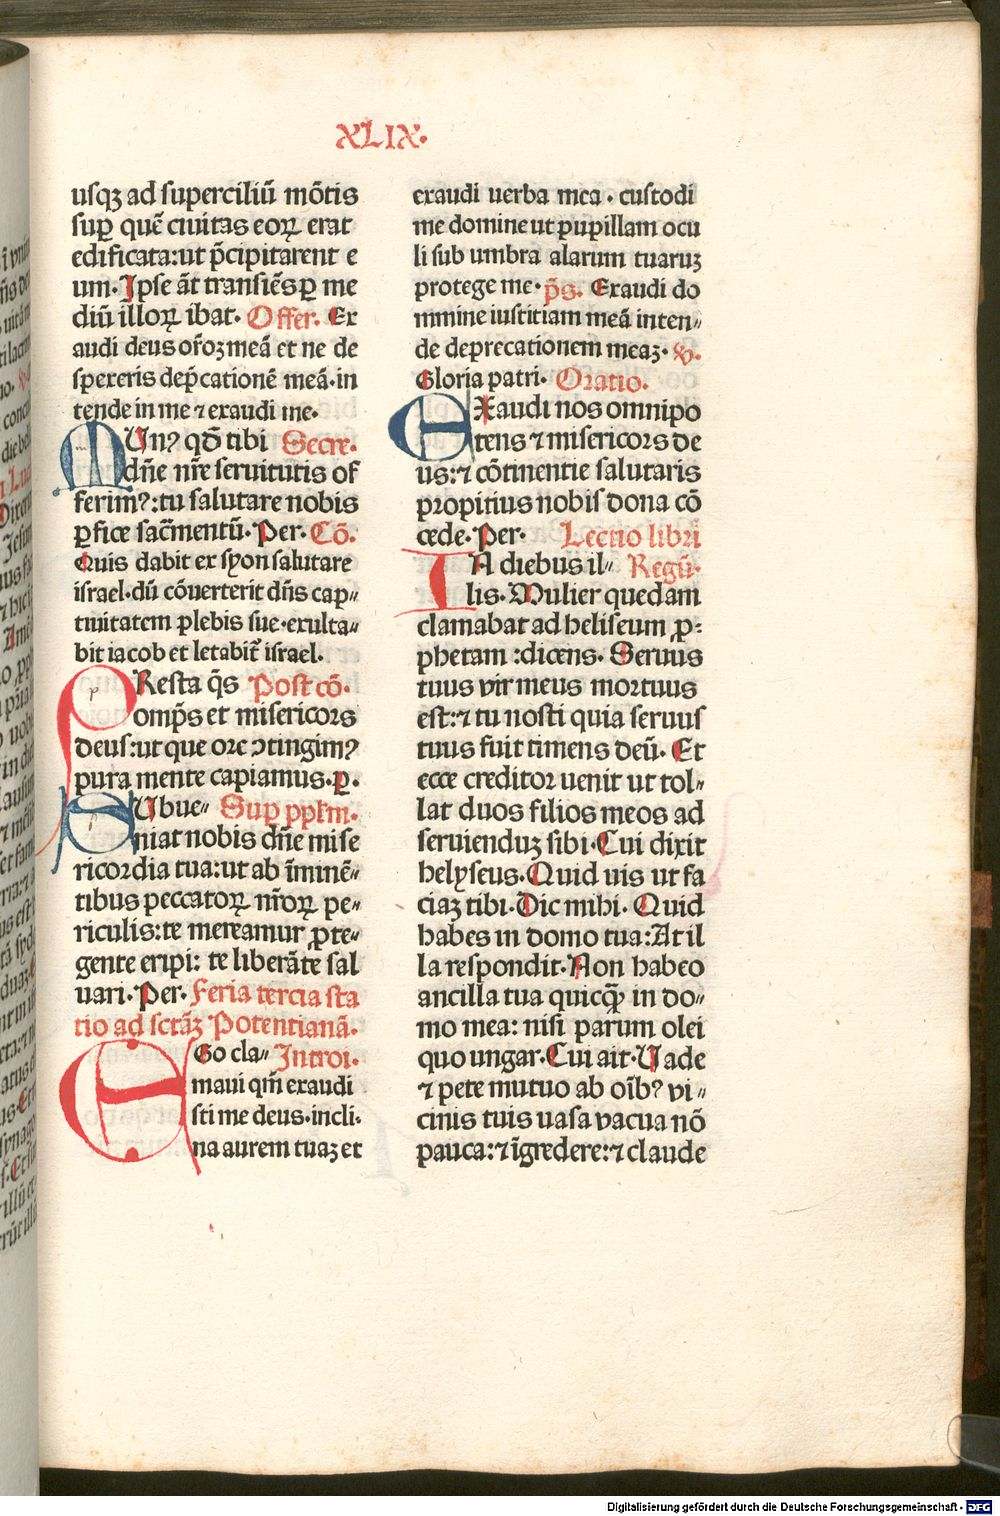 XLIX.
usqꝫ ad superciliū mōtis
suꝑ quē ciuitas eoꝝ erat
edificata: ut p̄cipitarent e
um. Ipse āt transiēs ꝑ me
diū illoꝝ ibat. Offer. Ex
audi deus or̄oꝫ meā et ne de
spexeris dep̄cationē meā. in
tende in me ⁊ exaudi me.
MUnꝰ qd̄ tibi Secre.
dn̄e nr̄e seruitutis of
ferimꝰ: tu salutare nobis
ꝑfice sac̄mentū. Per. Cō.
Quis dabit ex syon salutare
israel. dū cōuerterit dn̄s cap⸗
tiuitatem plebis sue. exulta⸗
bit iacob et letabit̄ israel.
PResta q̄s Post cō.
omp̄s et misericors
deus: ut que ore ↄtingimꝰ
pura mente capiamus. ꝑ.
SUbue⸗ Sup pplm̄.
niat nobis dn̄e mise
ricordia tua: ut ab īminē⸗
tibus peccatoꝝ nr̄oꝝ pe⸗
riculis: te mereamur ꝓte⸗
gente eripi: te liberāte sal
uari. Per. Feria tercia sta
tio ad sctāꝫ Potentianā.
EGo cla⸗ Introi.
maui qm̄ exaudi
sti me deus. incli⸗
na aurem tuaꝫ et
exaudi uerba mea. custodi
me domine ut pupillam ocu
li sub umbra alarum tuaruꝫ
protege me. p̄s. Exaudi do
mmine iustitiam meā inten⸗
de deprecationem meaꝫ. ℣.
Gloria patri. Oratio.
EXaudi nos omnipo
tens ⁊ misericors de
us: ⁊ cōtinentie salutaris
propitius nobis dona cō
cede. Per. Lectio libri
IN diebus il⸗ Regū.
lis. Mulier quedam
clamabat ad heliseum ꝓ⸗
phetam: dicens. Seruus
tuus vir meus mortuus
est: ⁊ tu nosti quia seruus
tuus fuit timens deū. Et
ecce creditor uenit ut tol⸗
lat duos filios meos ad
seruienduꝫ sibi. Cui dixit
helyseus. Quid uis ut fa
ciaꝫ tibi. Dic mihi. Quid
habes in domo tua: At il
la respondit. Non habeo
ancilla tua quicqꝫ̄ in do⸗
mo mea: nisi parum olei
quo ungar. Cui ait. Uade
⁊ pete mutuo ab oībꝰ vi⸗
cinis tuis uasa vacua nō
pauca: ⁊ īgredere: ⁊ claude
Digitalisierung gefördert durch die Deutsche Forschungsgemeinschaft - DFG